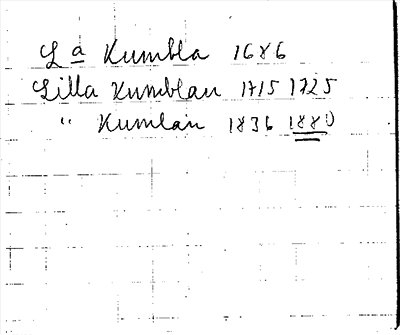 La Kumbla 1686
Lilla Kumblan 1715 1725
" Kumlan 1836 1880